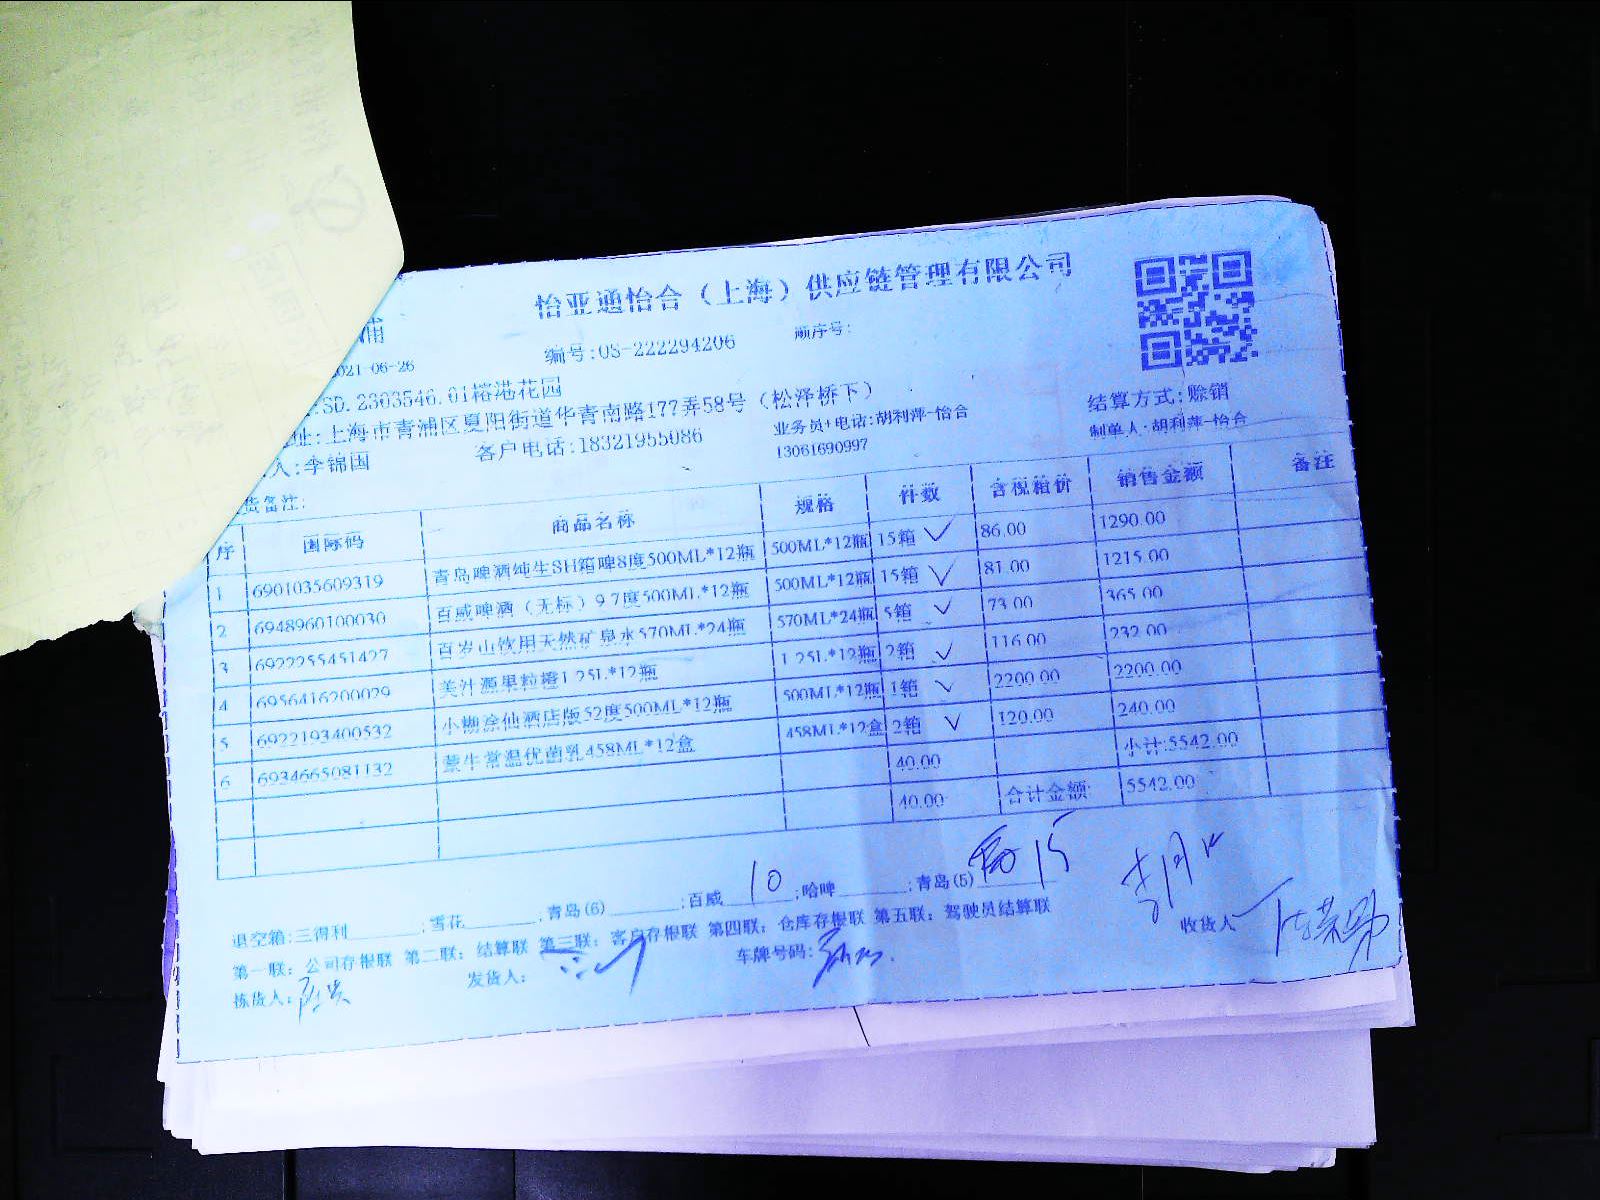 怡亚通怡合（上海）供应链管理有限公司
浦
编号:OS-222294206 顺序号:
021-06-26
.SD.2303546.01榕港花园
址:上海市青浦区夏阳街道华青南路177弄58号（松泽桥下） 结算方式:赊销
人:李锦国 客户电话:18321955086 业务员+电话:胡利萍-怡合 制单人:胡利萍-怡合
13061690997
货备注:
序 国际码 商品名称 规格 件数 含税箱价 销售金额 备注
1 6901035609319 青岛啤酒纯生SH箱啤8度500ML*12瓶 500ML*12瓶 15箱 86.00 1290.00
2 6948960100030 百威啤酒（无标）9.7度500ML*12瓶 500ML*12瓶 15箱 81.00 1215.00
3 6922255451427 百岁山饮用天然矿泉水570ML*24瓶 570ML*24瓶 5箱 73.00 365.00
4 6956416200029 美汁源果粒橙1.25L*12瓶 1.25L*12瓶 2箱 116.00 232.00
5 6922193400532 小糊涂仙酒店版52度500ML*12瓶 500ML*12瓶 1箱 2200.00 2200.00
6 6934665081132 蒙牛常温优菌乳458ML*12盒 458ML*12盒 2箱 120.00 240.00
40.00 小计:5542.00
40.00 合计金额: 5542.00
退空箱:三得利 ;雪花 ;青岛(6) ;百威 10 ;哈啤 ;青岛(5) 15
第一联：公司存根联 第二联：结算联 第三联：客户存根联 第四联：仓库存根联 第五联：驾驶员结算联
拣货人: 发货人: 车牌号码: 收货人